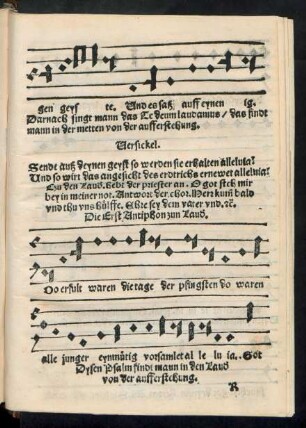 gen geys te. Und es saß auff eynen ig.
Darnach singt mann das Te deum laudamus / das findt
mann in der metten von der aufferstehung.
Versickel.
Sendt auß deynen geyst so werden sie erhalten alleluia!
Und so wirt das angesicht des erdtrichs ernewet alleluia!
Zu den Laud. hebt der priester an. O got steh mir
bey in meiner not. Antwor. der chor. Herr kum bald
vnd thu vns hülffe. Ehre sey dem vater vnd. rc.
Die Erst Antiphon zun Laud.
Do erfult waren die tage der pfingsten do waren
alle junger eynmütig vorsamlet al le lu ia. Got
Dysen Psalm findt mann in den Laud
von der aufferstehung.
R